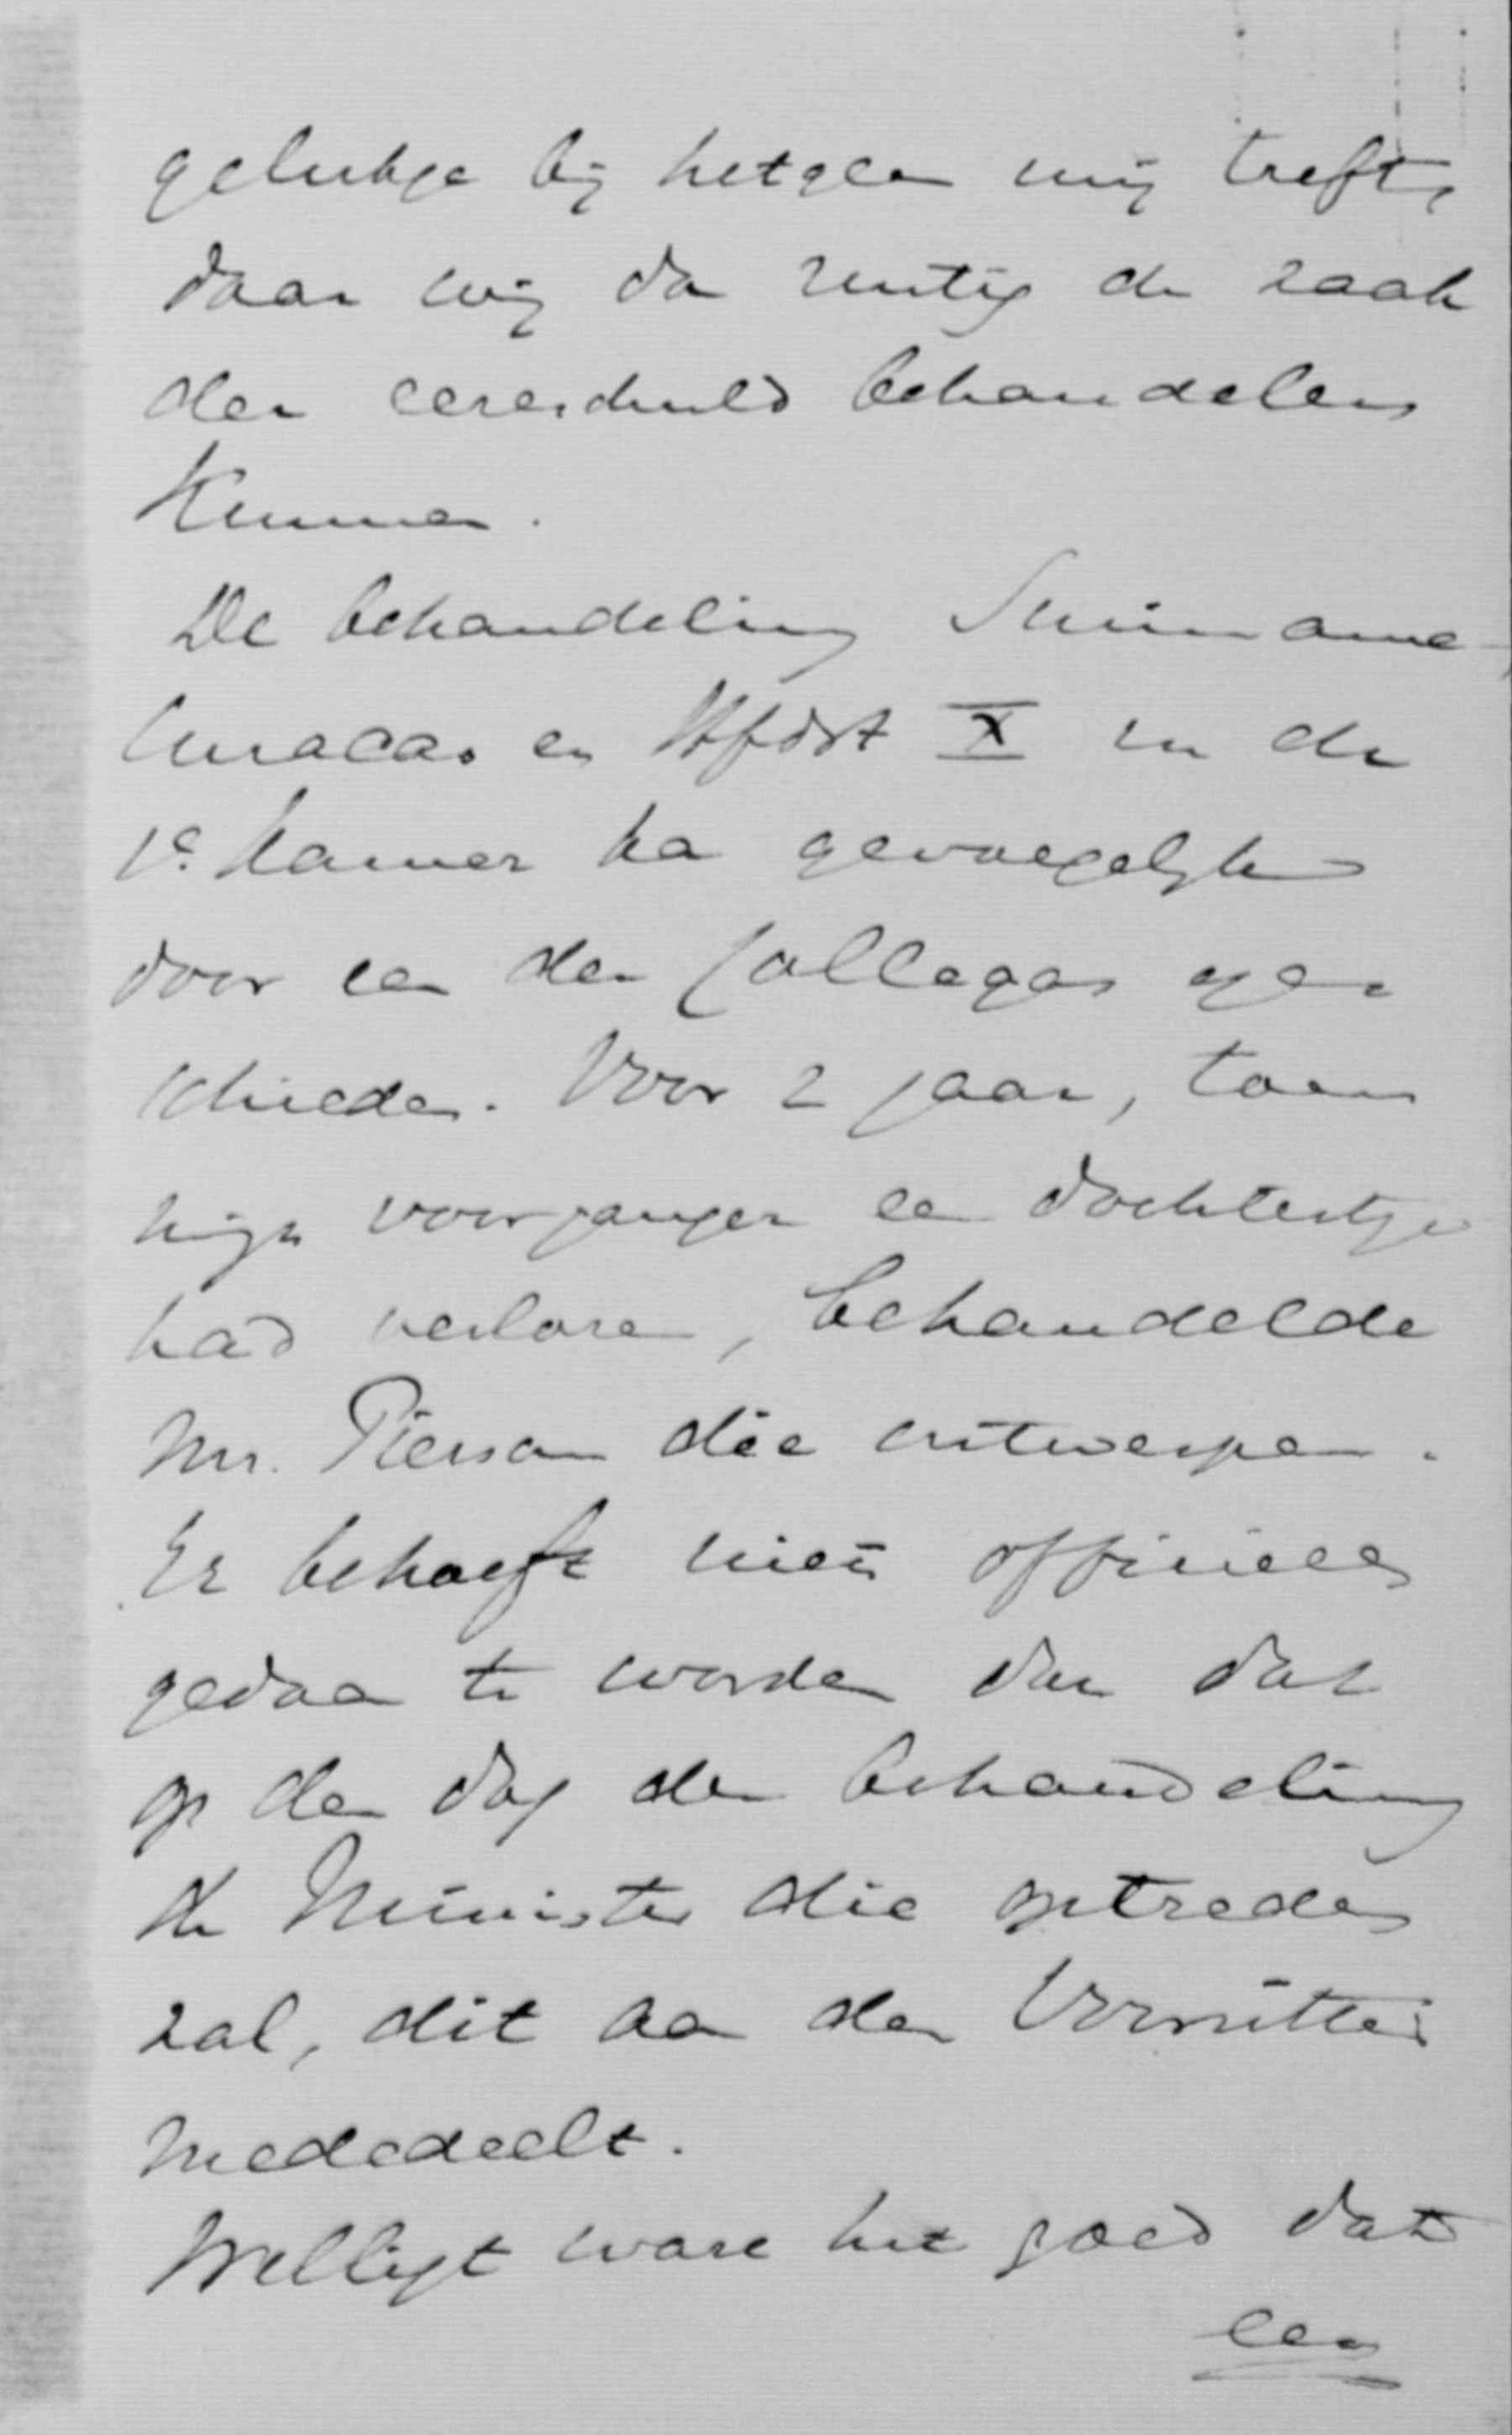 gelukje bij hetgeen mij treft,
daar wij dan rustig de zaak
der eereschuld behandelen
kunnen.
De behandeling Suriname,
Curacao en Hfdst X in de
1e Kamer kan gevoegelijk
door een der Collegas ge-
schieden. Voor 2 jaar, toen
mijn voorganger een dochtertje
had verloren, behandelde
Mr. Pierson die ontwerpen.
Er behoeft niets officieels
gedaan te worden dan dat
op den dag der behandeling
de Minister die optreden
zal, dit aan den Voorzitter
mededeelt.
Welligt ware het goed dat
een